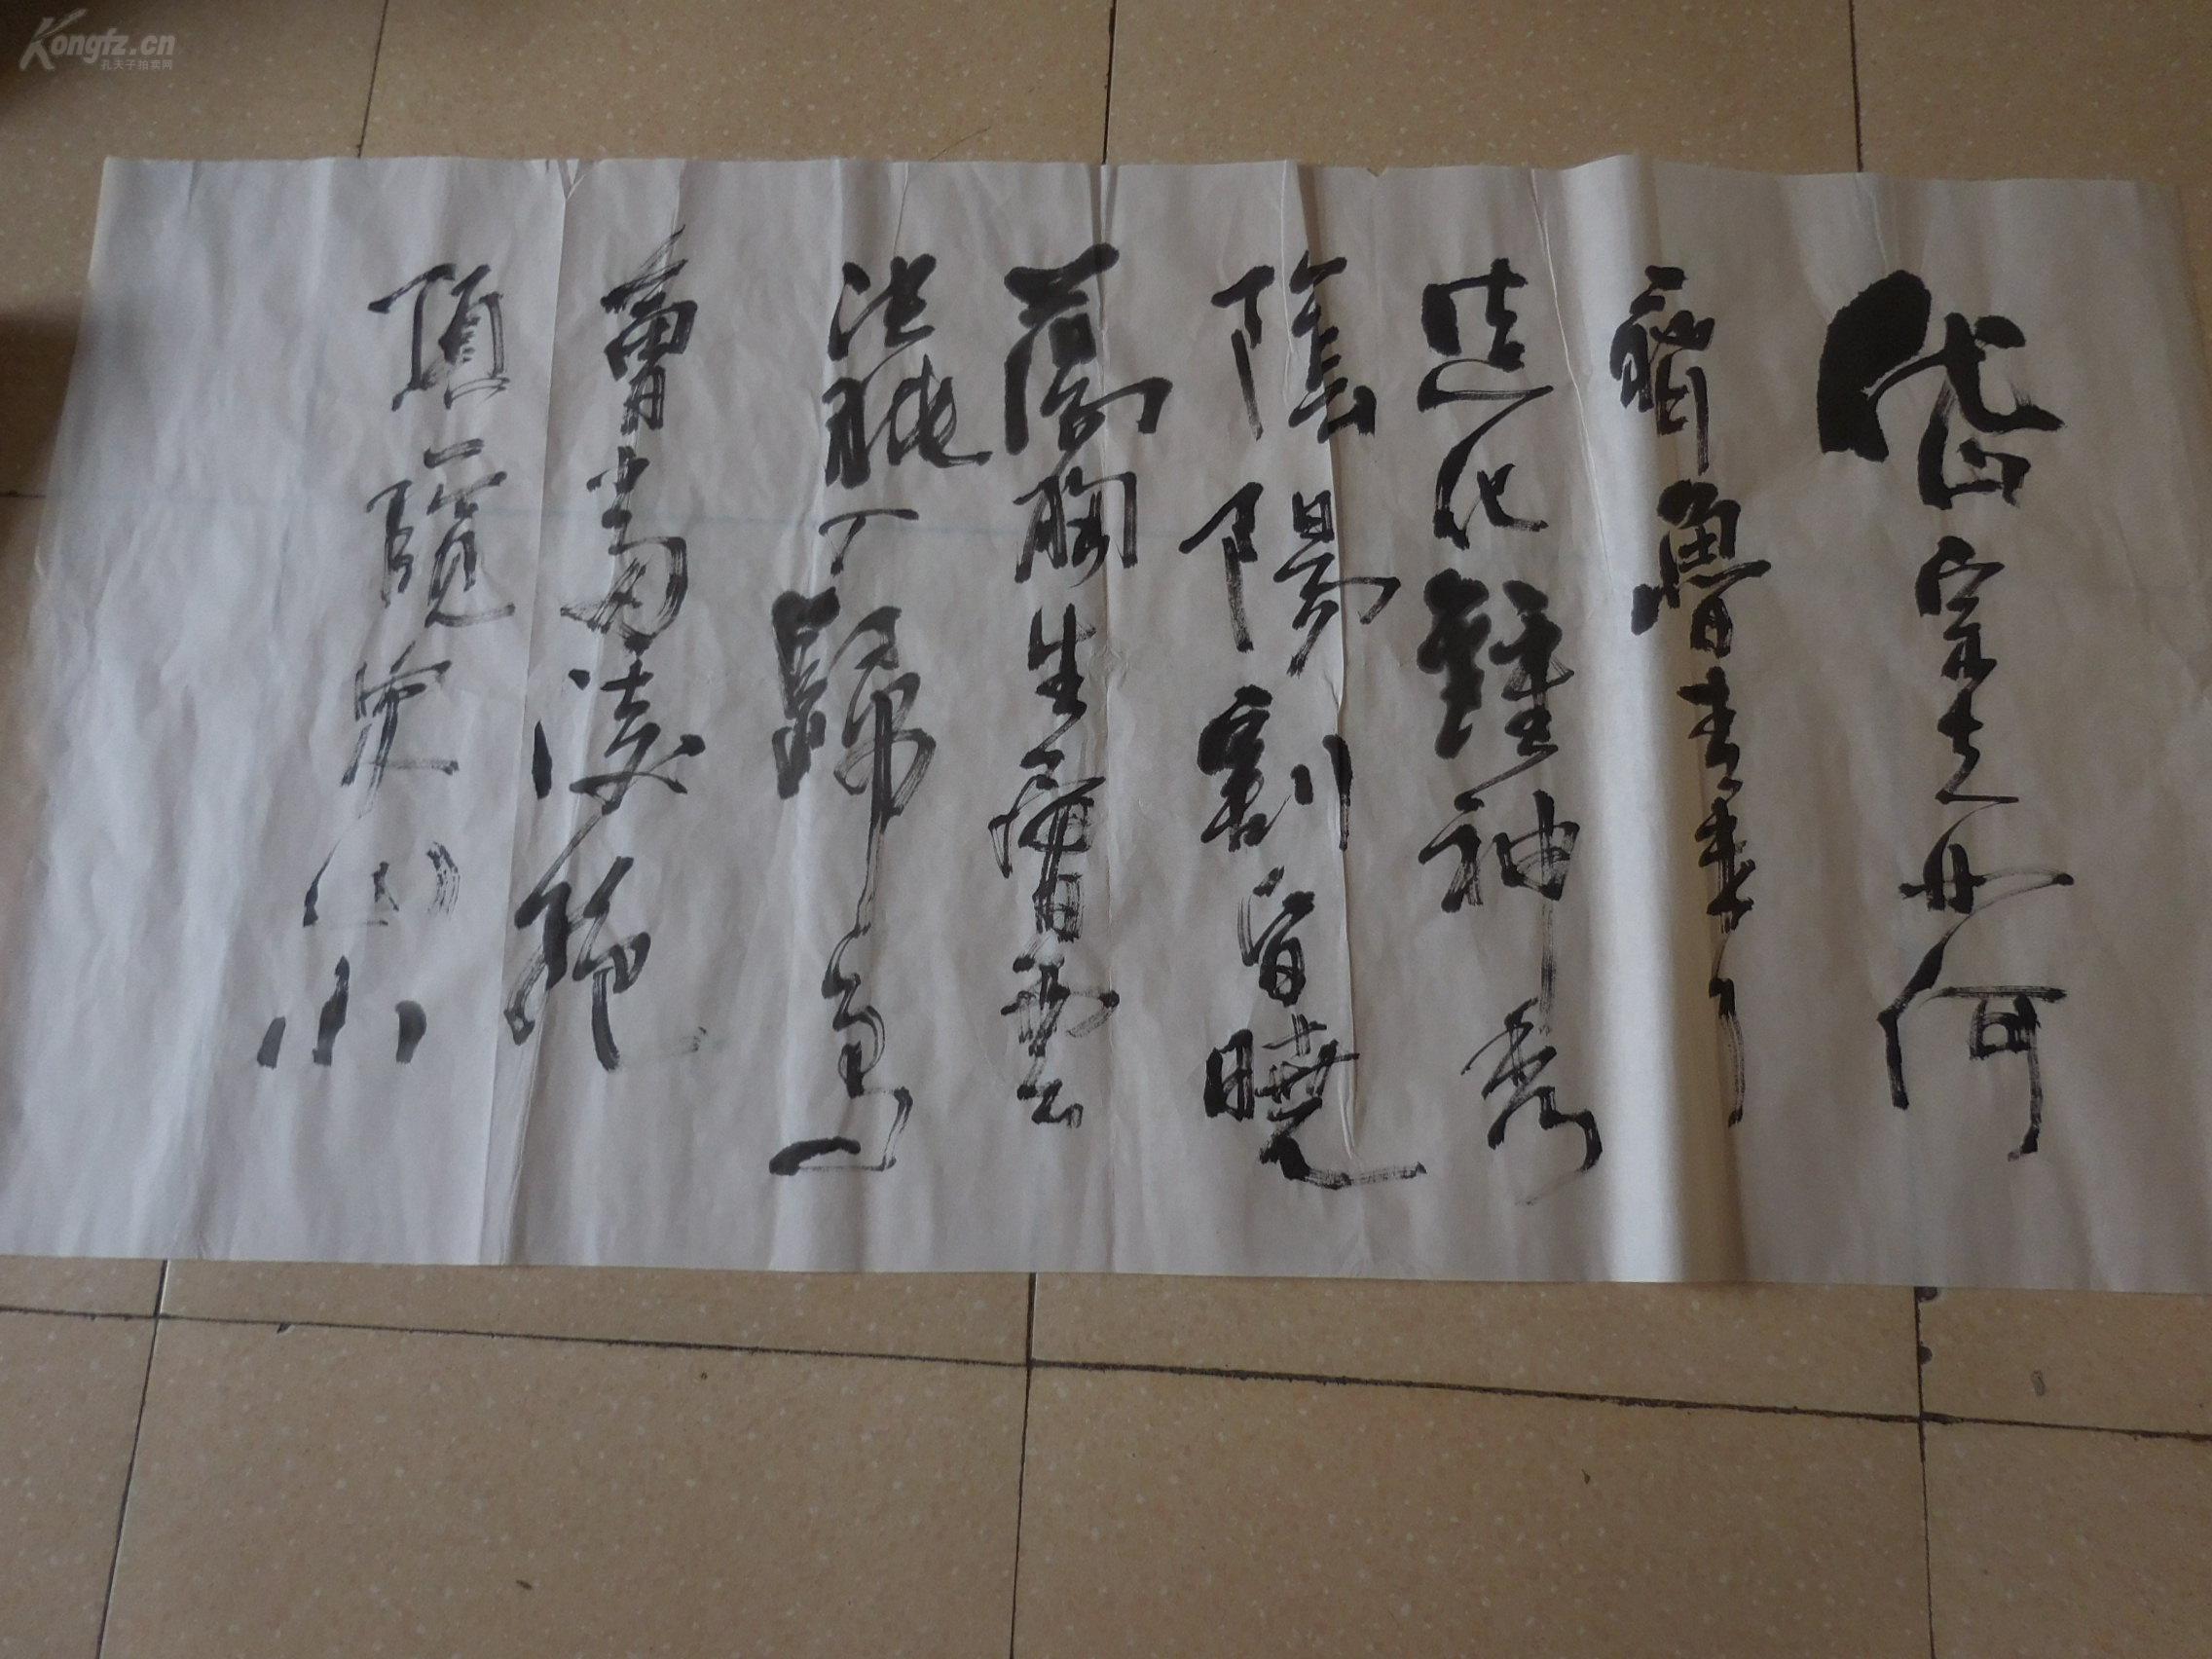 Kongfz.cn
孔夫子拍卖网
岱宗夫如何
齊魯青未了
造化鍾神秀
陰陽割昏曉
蕩胸生層雲
決眥入歸鳥
會當凌絕
頂一覽眾山小